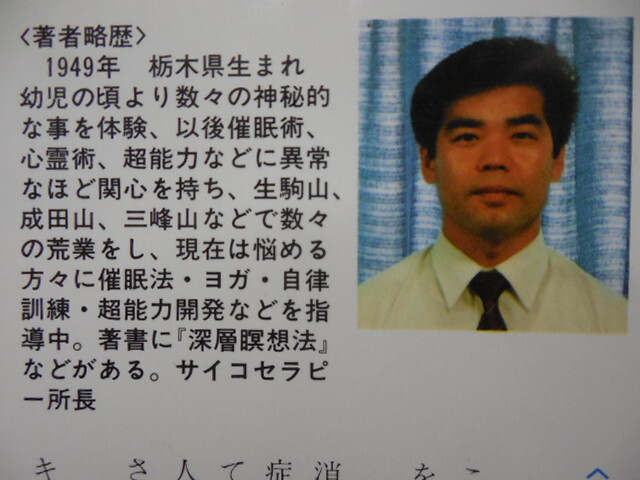 〈著者略歴〉
1949年　栃木県生まれ
幼児の頃より数々の神秘的
な事を体験、以後催眠術、
心霊術、超能力などに異常
なほど関心を持ち、生駒山、
成田山、三峰山などで数々
の荒業をし、現在は悩める
方々に催眠法・ヨガ・自律
訓練・超能力開発などを指
導中。著書に『深層瞑想法』
などがある。サイコセラピ
ー所長
キ　さ人て症消　を